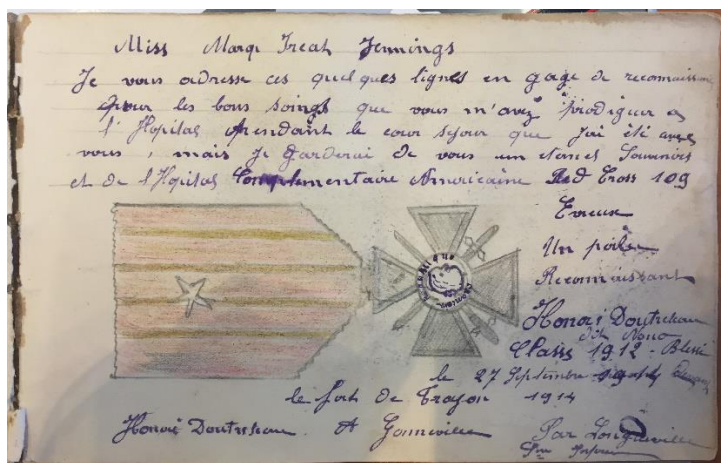 Miss Marge Treat Jennings
Je vous adresse ces quelques lignes en gage de reconnaissan
pour les bons soings que vous m'avez prodiguer a
l'Hopital pendant le cour sejour que j'ai été avec
vous, mais je garderai de vous un eternel Souvenir
et de l'Hopital Complimentaire Americaine Red Cross 109
Evreux
Un poilu
Reconnaissant
Honoré Doutreleau
dit Nono
Classe 1912 - Blessé
le 27 Septembre
le fort de Troyon 1914
Honoré Doutreleau. A Gonneville
Par Longueville